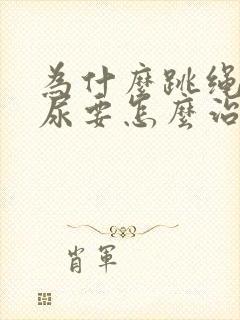 为什麼跳绳
尿要怎麼治
肖軍